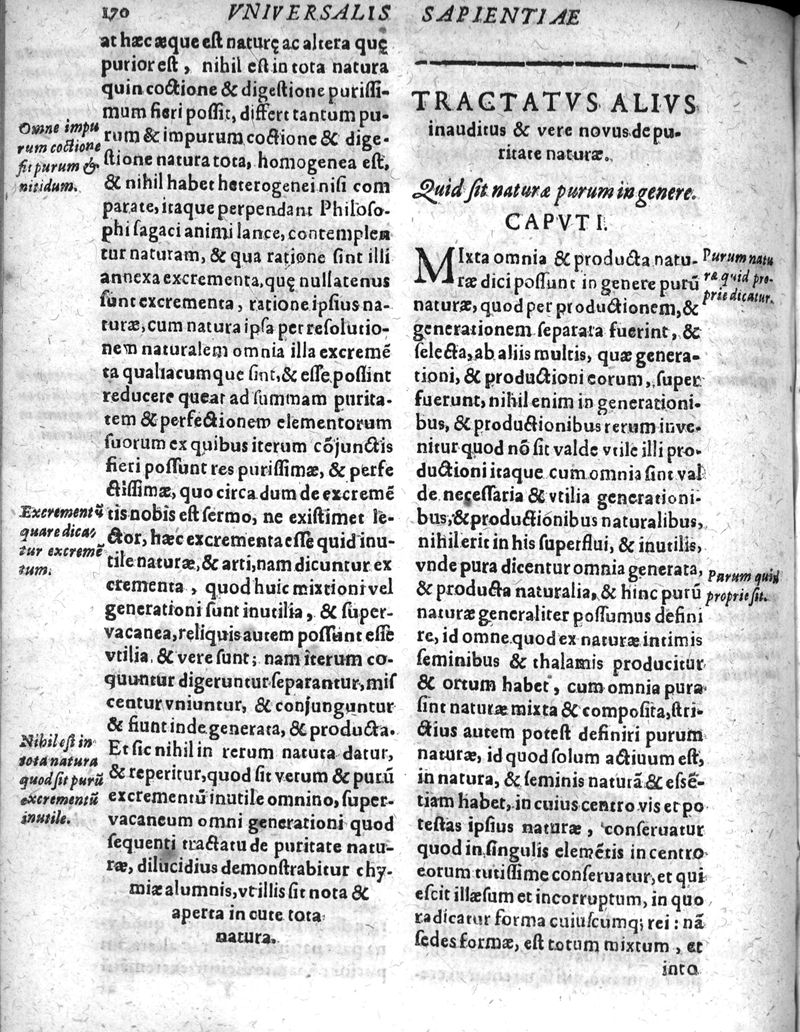 170 VNIVERSALIS SAPIENTIAE
at hæc æque est naturę ac altera quę
purior est, nihil est in tota natura
quin coctione & digestione purissi-
mum fieri possit, differt tantum pu-
rum & impurum coctione & dige-
stione natura tota, homogenea est,
& nihil habet heterogenei nisi com
parate, itaque perpendant Philoso-
phi sagaci animi lance, contemplen
tur naturam, & qua ratione sint illi
annexa excrementa, quę nullatenus
sunt excrementa, ratione ipsius na-
turæ, cum natura ipsa per resolutio-
nem naturalem omnia illa excremē
ta qualiacumque sint, & esse possint
reducere queat ad summam purita-
tem & perfectionem elementorum
suorum ex quibus iterum cōjunctis
fieri possunt res purissimæ, & perfe
ctissimæ, quo circa dum de excremē
tis nobis est sermo, ne existimet le-
ctor, hæc excrementa esse quid inu-
tile naturæ, & arti, nam dicuntur ex
crementa, quod huic mixtioni vel
generationi sunt inutilia, & super-
vacanea, reliquis autem possunt esse
vtilia, & vere sunt; nam iterum co-
quuntur digeruntur separantur, mis
centur vniuntur, & conjunguntur
& fiunt inde generata, & producta.
Et sic nihil in rerum natura datur,
& reperitur, quod sit verum & purū
excrementū inutile omnino, super-
vacaneum omni generationi quod
sequenti tractatu de puritate natu-
ræ, dilucidius demonstrabitur chy-
miæ alumnis, vt illis sit nota &
aperta in cute tota
natura.
Omne impu
rum coctione
fit purum &
nitidum.
Excrementū
quare dica-
tur excremē
tum.
Nihil est in
tota natura
quod sit purū
excrementū
inutile.
TRACTATVS ALIVS
inauditus & vere novus de pu-
ritate naturæ.
Quid sit naturæ purum in genere.
CAPVT I.
MIxta omnia & producta natu-
ræ dici possunt in genere purū
naturæ, quod per productionem, &
generationem separata fuerint, &
selecta, ab aliis multis, quæ genera-
tioni, & productioni eorum, super
fuerunt, nihil enim in generationi-
bus, & productionibus rerum inve-
nitur quod nō sit valde vtile illi pro-
ductioni itaque cum omnia sint val
de necessaria & vtilia generationi-
bus, & productionibus naturalibus,
nihil erit in his superflui, & inutilis,
vnde pura dicentur omnia generata,
& producta naturalia, & hinc purū
naturæ generaliter possumus defini
re, id omne quod ex naturæ intimis
seminibus & thalamis producitur
& ortum habet, cum omnia pura
sint naturæ mixta & composita, stri-
ctius autem potest definiri purum
naturæ, id quod solum actiuum est,
in natura, & seminis naturā & essē-
tiam habet, in cuius centro vis et po
testas ipsius naturæ, conseruatur
quod in singulis elemētis in centro
eorum tutissime conseruatur, et qui
escit illæsum et incorruptum, in quo
radicatur forma cuiuscumq; rei: nā
sedes formæ, est totum mixtum, et
into
Purum natu
ræ quid pro-
prie dicatur.
Purum quid
proprie sit.